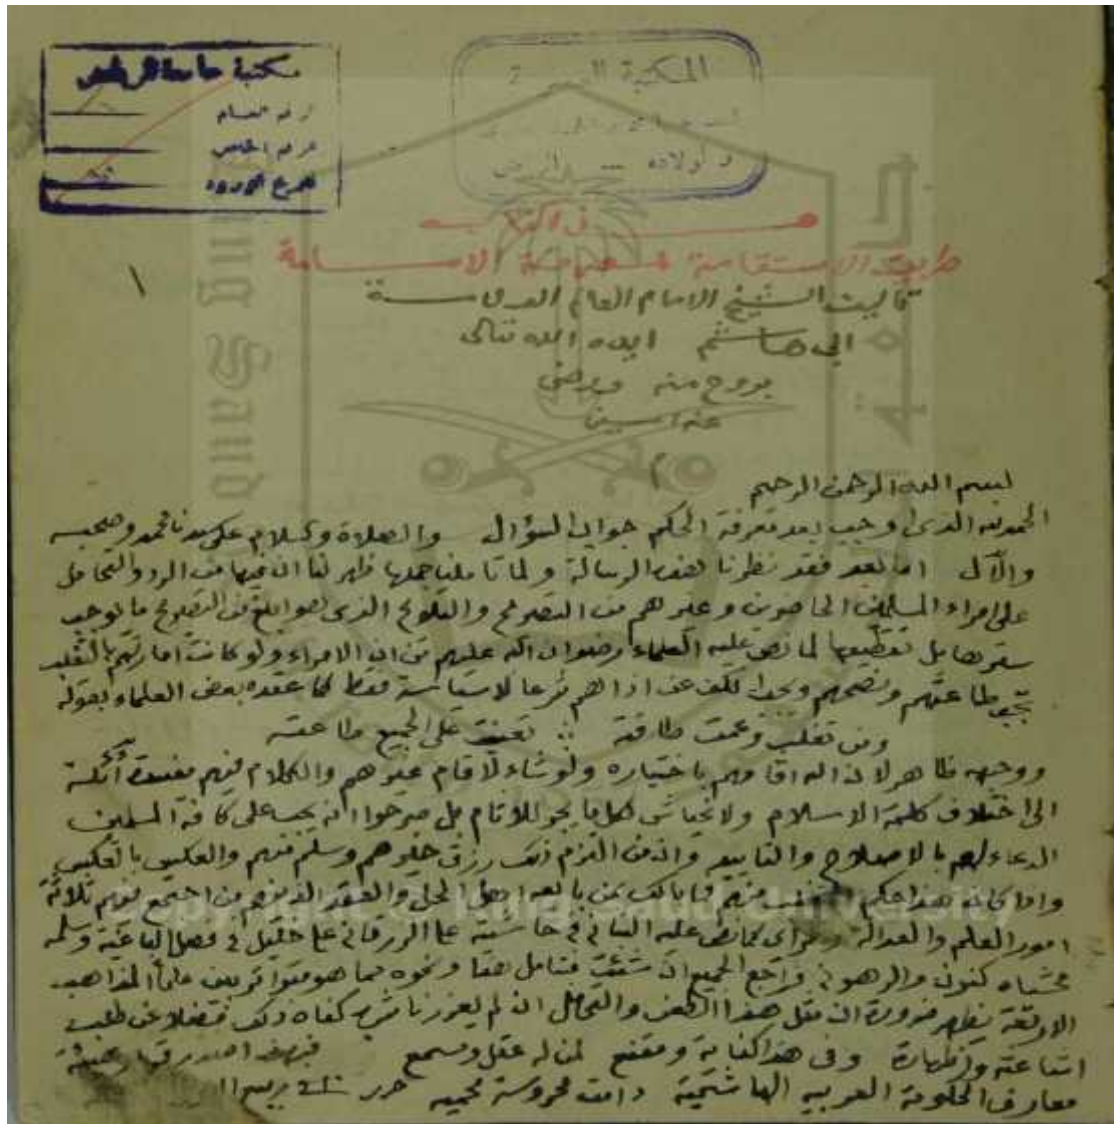 مكتبة جامعة الرياض
رقم العام
رقم الخاص
المكتبة
ولأولاده الرياض
هذا كتاب
طريق الاستقامة لمعرفة الامامة
تأليف الشيخ الامام العالم العلامة
ابى هاشم ايده الله تعالى
بروح منه ورضى
عنه امين
١
بسم الله الرحمن الرحيم
الحمد لله الذى اوجب بعد معرفة الحكم جواب السؤال والصلاة والسلام على سيدنا محمد وصحبه
والآل اما بعد فقد نظرنا لهذه الرسالة ولما تأملناها ظهر لنا ان فيها من الرد والتحامل
على امراء المسلمين الحاضرين وغيرهم من التصريح والتلويح الذى هو ابلغ من التصريح ما يوجب
سترها بل تقطيعها لما نص عليه العلماء رضوان الله عليهم من ان الامراء ولو كانت امارتهم بالتغلب
تجب طاعتهم ونصحهم ويجب الكف عن اذاهم شرعا لا سياسة فقط كما عقده بعض العلماء بقوله
ومن تغلب وعمت طاقته تعينت على الجميع طاعته
ووجهه ظاهر لان الله اقامهم باختياره ولو شاء لاقام غيرهم والكلام فيهم مفسدة
الى اختلاف كلمة الاسلام ولا يخفاش كما يجر للاثام بل صرحوا انه يجب على كافة المسلمين
الدعاء لهم بالاصلاح والتأييد وان من التزم ذلك رزق خيرهم وسلم منهم والعكس بالعكس
واذا كان هذا حكم المتغلب منهم فما بالك بمن بايعه اهل الحل والعقد الذين من اجتمع فيهم ثلاثة
امور العلم والعدالة والراى كما نص عليه البنانى فى حاشيته على الزرقانى على خليل فى فصل الباغية وسلمه
محشياه كنون والرهونى وراجع الجميع ان شئت فتأمل هذا ونحوه مما هو متواتر بين علماء المذاهب
الاربعة يظهر ضرورة ان مثل هذا الطعن والتحامل ان لم يعزر ناشره كفاه ذلك فضلا عن طلب
اشاعته واظهاره وفى هذا كفاية ومقنع لمن له عقل ومسمع
معارف الحكومة العربية الهاشمية دامت محروسة محمية حرر